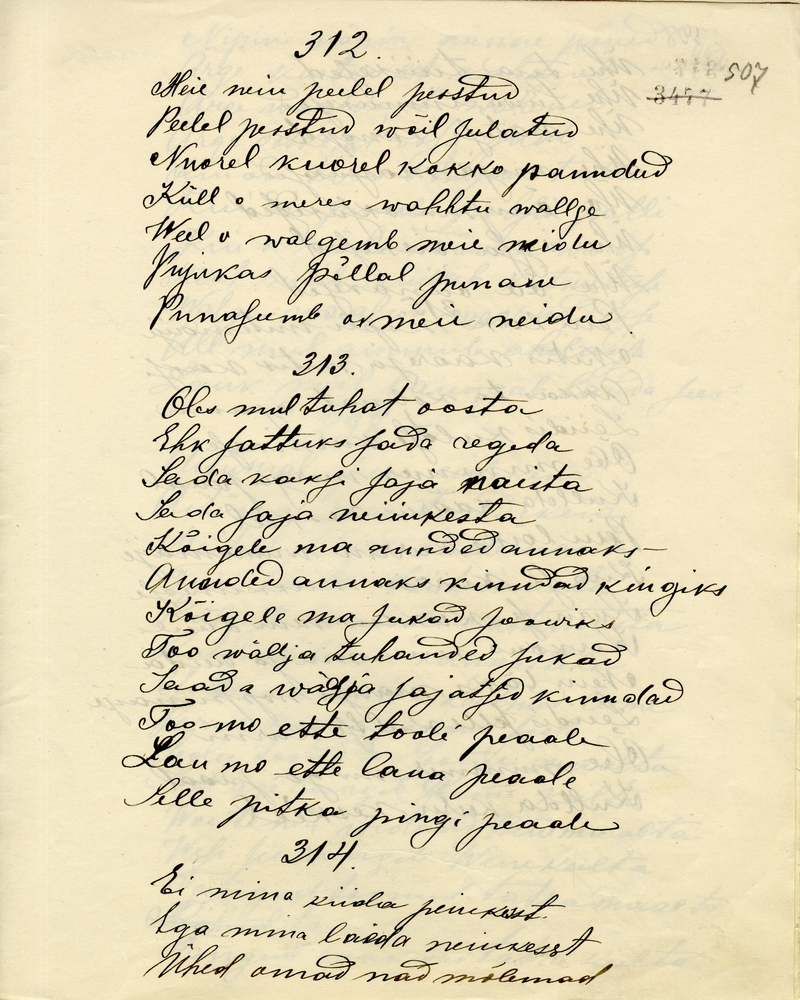 312.
507
3477
Meie neiu peelel pesstud
Peelel pesstud wõil sulatud
Nuorel kuorel kokko panndud
Küll o meres wahhtu wallge
Weel o walgemb meie neidu
Pujukas põllal punane
Punasemb on meie neidu.
313.
Oles mul tuhat oosta
Ehk sattuks sada regeda
Sada kaksi saja naista
Sada saja neiukesta
Kõigele ma annded annaks –
Annded annaks kinndad kingiks
Kõigele ma sukad soowiks
Too wälja tuhanded sukad
Saada wälja sajatsed kinndad
Too mo ette tooli peaale
Lau mo ette laua peaale
Selle pitka pingi peaale
314.
Ei mina kiida peiukest.
Ega mina laida neiukesst
Ühed omad nad mõlemad